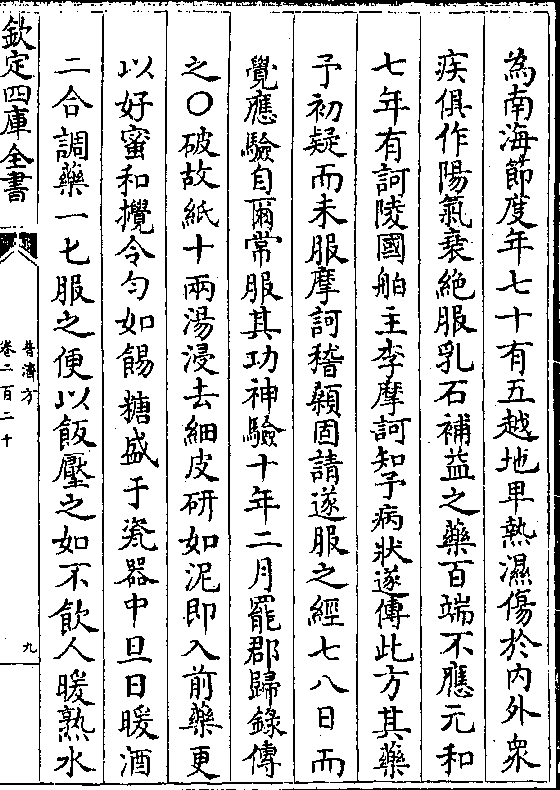 為南海節度年七十有五越地卑熱濕傷於內外衆
疾俱作陽氣衰絶服乳石補益之藥百端不應元和
七年有訶陵國舶主李摩訶知予病狀遂傳此方其藥
予初疑而未服摩訶稽顙固請遂服之經七八日而
覺應驗自爾常服其功神驗十年二月罷郡歸錄傳
之〇破故紙十兩湯浸去細皮研如泥即入前藥更
以好蜜和攪令勻如餳糖盛于瓷器中旦日暖酒
二合調藥一七服之便以飯壓之如不飲人暖熟水
欽定四庫全書
普濟方
卷二百二十
九